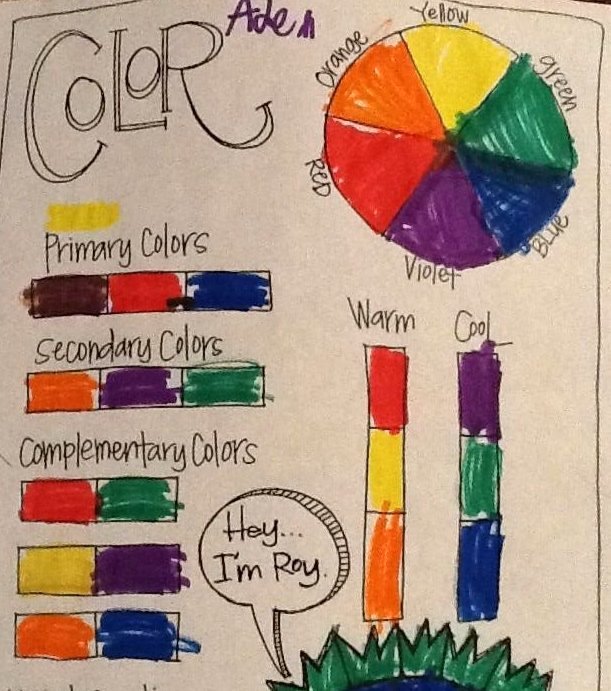 COLOR
Aden
Yellow
Orange
green
Red
Blue
Violet
Primary Colors
Secondary Colors
Complementary Colors
Warm
Cool
Hey...
I'm Roy.